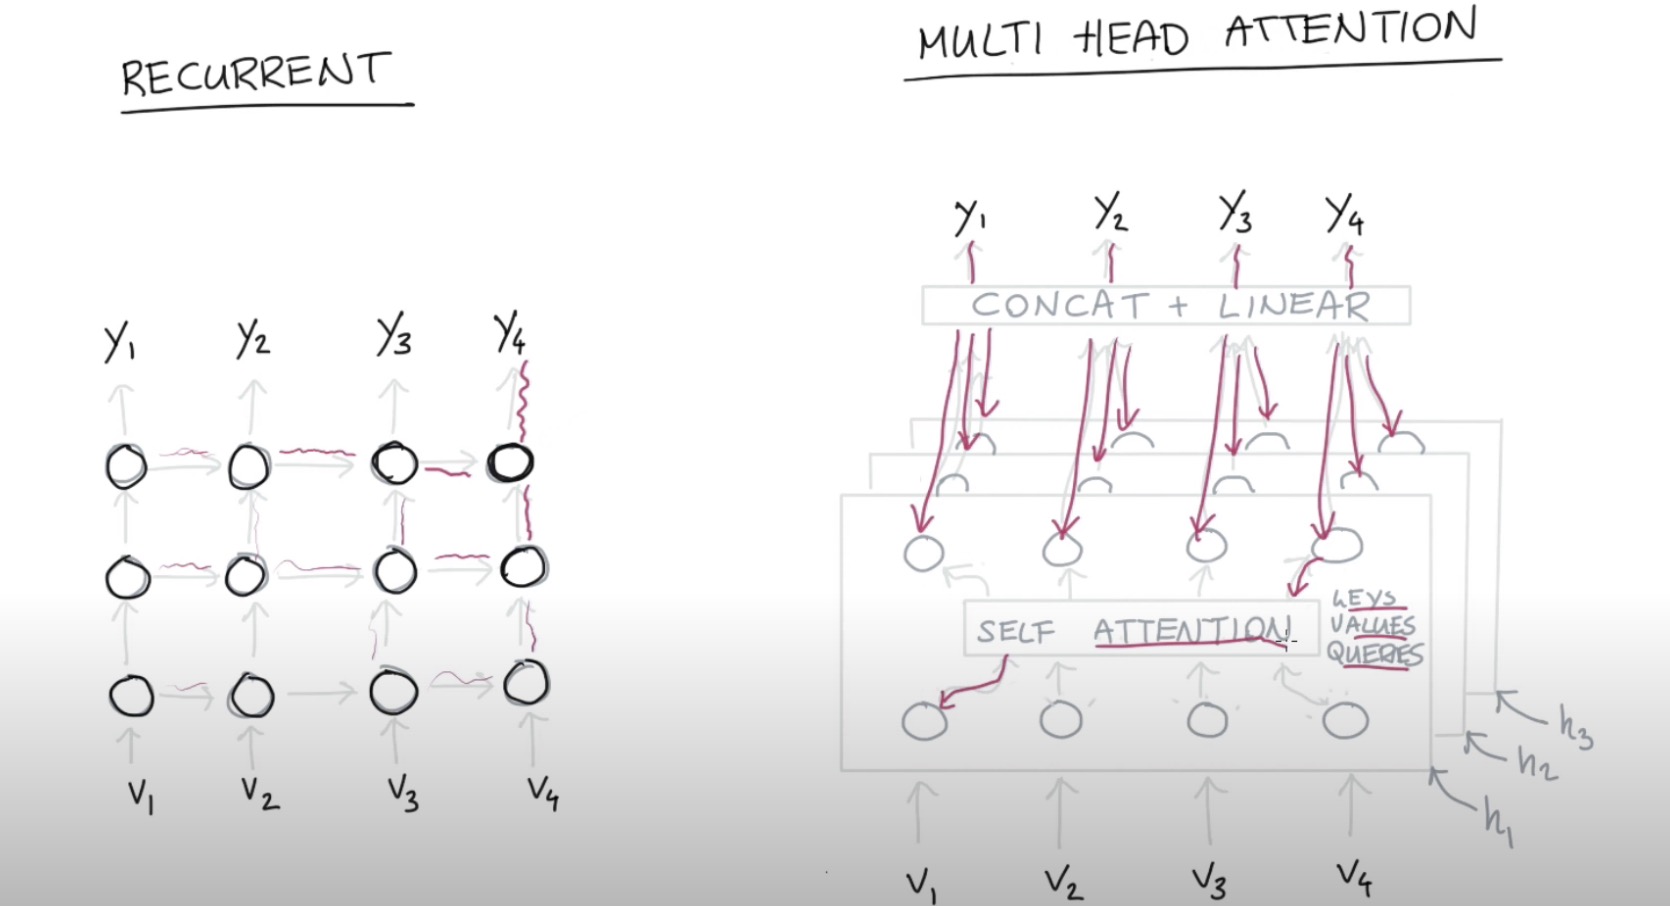 RECURRENT
Y1 Y2 Y3 Y4
V1 V2 V3 V4
MULTI HEAD ATTENTION
Y1 Y2 Y3 Y4
CONCAT + LINEAR
SELF ATTENTION
KEYS
VALUES
QUERIES
h3
h2
h1
V1 V2 V3 V4